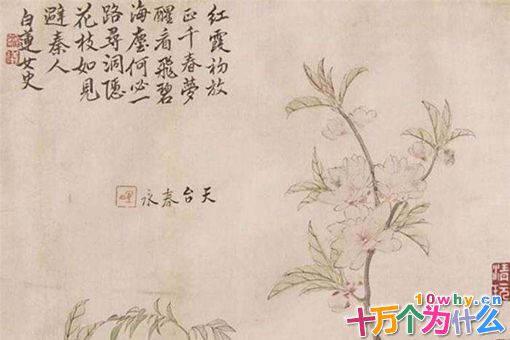 紅霞初放
正千春夢
醒看飛碧
海塵何必一
路尋洞隱
花枝如見
避秦人
白蓮女史
天台春永
10why.cn
十万个为什么